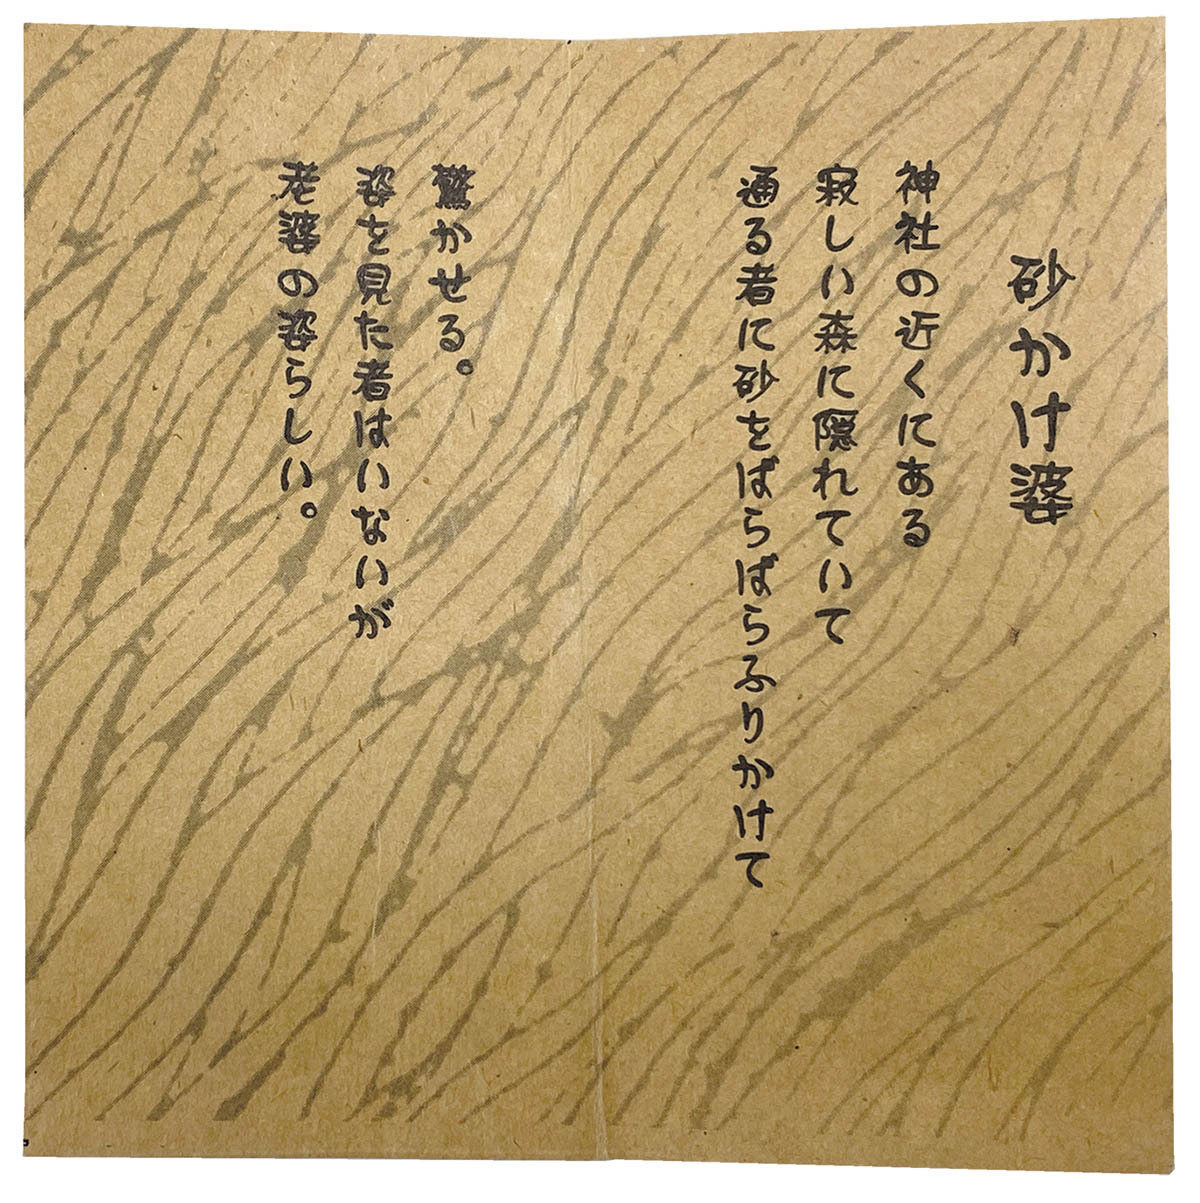 砂かけ婆
神社の近くにある
寂しい森に隠れていて
通る者に砂をばらばらふりかけて
驚かせる。
姿を見た者はいないが
老婆の姿らしい。